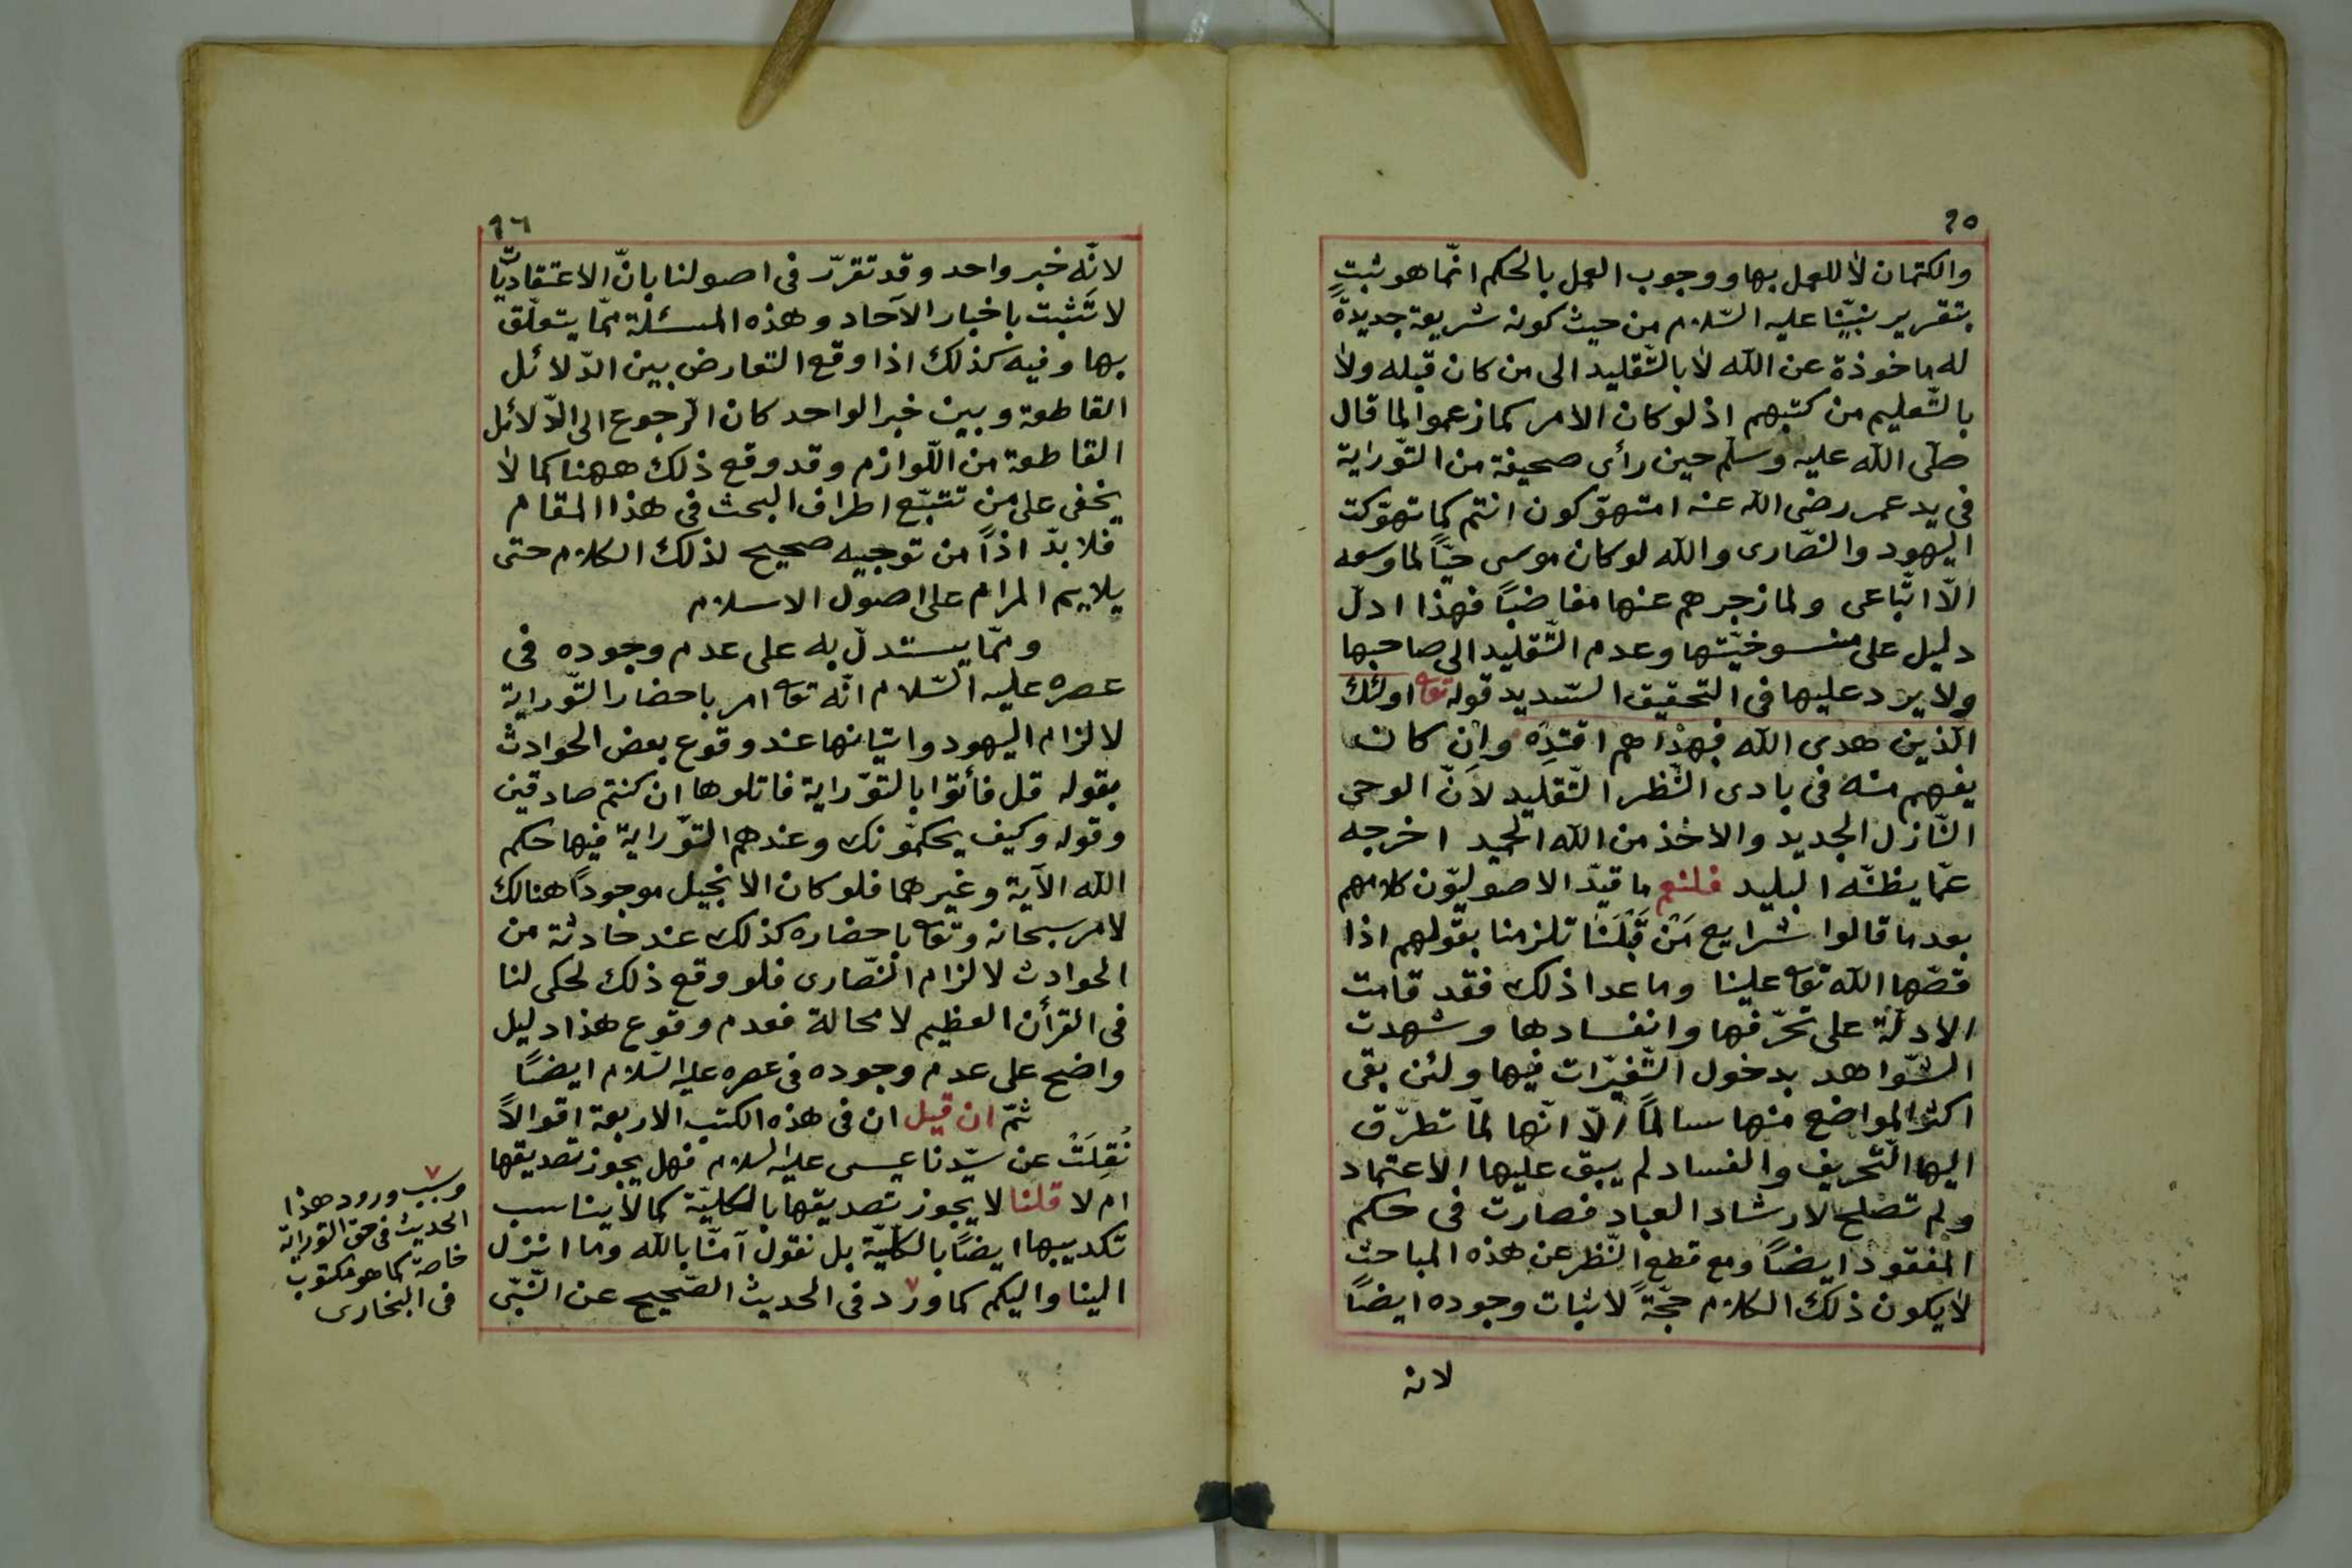 ٩٥
والكتمان لا للعمل بها ووجوب العمل بالحكم انّما هو ثبت
بتقرير نبيّنا عليه السّلام من حيث كونه شريعة جديدةً
له ماخوذة عن الله لا بالتّقليد الى من كان قبله ولا
بالتّعليم من كتبهم اذ لو كان الامر كما زعموا لما قال
صلّى الله عليه وسلّم حين رأى صحيفة من التّوراية
فى يد عمر رضى الله عنه امتهوّكون انتم كما تهوّكت
اليهود والنصّارى والله لو كان موسى حيّاً لما وسعه
الّا اتّباعى ولما زجرهم عنها مغاضباً فهذا ادلّ
دليل على منسوخيّتها وعدم التّقليد الى صاحبها
ولا يرد عليها فى التحقيق السّديد قوله تعا اولئك
الّذين هدى الله فبهذاهم اقتدِه وان كان
يفهم منه فى بادى النّظر التّقليد لانّ الوحى
النّازل الجديد والاخذ من الله الحميد اخرجه
عمّا يظنّه البليد فلنعم ما قيّد الاصوليّون كلامهم
بعد ما قالوا شرايع مَنْ قَبْلَنَا تلزمنا بقولهم اذا
قصّها الله تعا علينا وما عدا ذلك فقد قامت
الادلّة على تحرّفها وانفسادها وشهدت
الشّواهد بدخول التّغيّرات فيها ولئن بقى
اكثر المواضع منها سالماً الّا انّها لمّا تطرّق
اليها التّحريف والفساد لم يبق عليها الاعتماد
ولم تصلح لارشاد العباد فصارت فى حكم
المفقود ايضاً ومع قطع النّظر عن هذه المباحث
لا يكون ذلك الكلام حجّةً لاثبات وجوده ايضاً
لانه
٩٦
لانّه خبر واحد وقد تقرّر فى اصولنا بانّ الاعتقاديّا
ت
لا تَثبت باخبار الآحاد وهذه المسئلة ممّا يتعلّق
بها وفيه كذلك اذا وقع التعارض بين الدّلائل
القاطعة وبين خبر الواحد كان الرّجوع الى الدّلائل
القاطعة من اللّوازم وقد وقع ذلك ههنا كما لا
يخفى على من تتبّع اطراف البحث فى هذا المقام
فلا بدّ اذاً من توجيه صحيح لذلك الكلام حتى
يلايم المرام على اصول الاسلام
وممّا يستدلّ به على عدم وجوده فى
عصره عليه السّلام انّه تعا امر باحضار التّوراية
لالزام اليهود واتيانها عند وقوع بعض الحوادث
بقوله قل فأتوا بالتوّراية فاتلوها ان كنتم صادقين
وقوله وكيف يحكّمونك وعندهم التّوراية فيها حكم
الله الآية وغيرهما فلو كان الانجيل موجوداً هنالك
لامر سبحانه وتعا باحضاره كذلك عند حادثة من
الحوادث لالزام النّصارى فلو وقع ذلك لحكى لنا
فى القرأن العظيم لا محالة فعدم وقوع هذا دليل
واضح على عدم وجوده فى عصره عليه السّلام ايضاً
ثمّ ان قيل ان فى هذه الكتب الاربعة اقوالاً
نُقِلَتْ عن سيّدنا عيسى عليه السلام فهل يجوز تصديقها
ام لا قلنا لا يجوز تصديقها بالكليّة كما لا يناسب
تكذيبها ايضاً بالكليّة بل نقول آمنّا بالله وما انزل
الينا واليكم كما ورد ٧ فى الحديث الصّحيح عن النّبّى
٧
وسبب ورود هذا
الحديث فى حق التوراية
خاصة كما هو مكتوب
فى البخارى